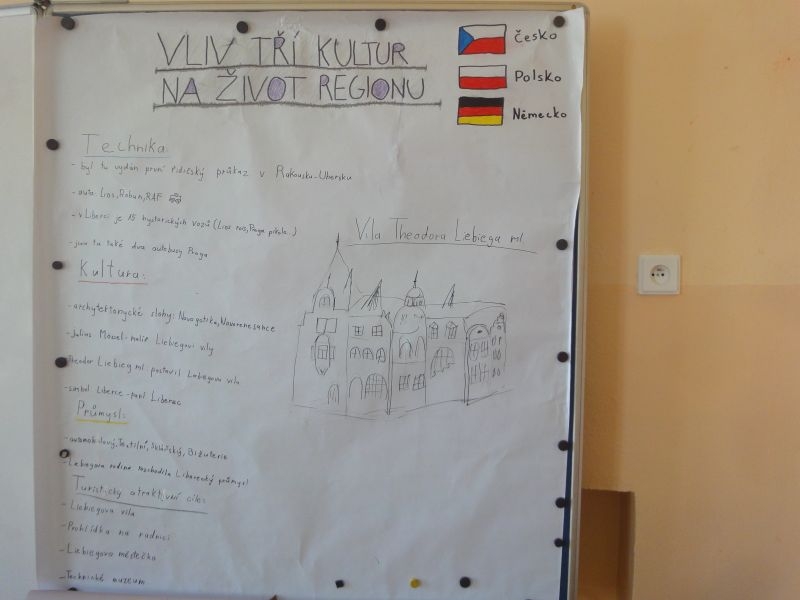 VLIV TŘÍ KULTUR
NA ŽIVOT REGIONU
Česko
Polsko
Německo
Technika
- byl tu vydán první řidičský průkaz v Rakousku-Uhersku
- auta Lias, Roban, RAF
- v Liberci je 15 hystorických vozů (Lias
- jsou tu také dva autobusy Praga
Kultura:
- archytektonycké slohy: Novogotika, Novorenesance
- malíř Liebiegovi vily
Theodor Liebieg ml postavil Lebiegova vila
- symbol Liberce - paní Liberec
Průmysl:
- automobilový, Textilní, Sklářský, Bižuterie
- Lebiegova rodina Liberecký průmysl
Turisticky atraktivní cíle:
- Liebiegova vila
- Prohlídka na radnici
- Liebiegovo městečko
- Technické muzeum
Vila Theodora Lebiega ml